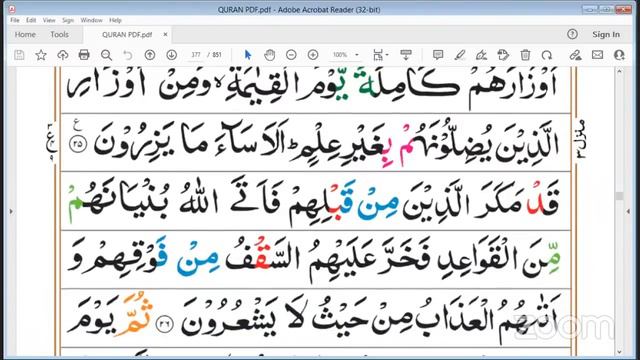 QURAN PDF.pdf - Adobe Acrobat Reader (32-bit)
File Edit View Sign Window Help
Home Tools QURAN PDF.pdf × Sign In
377 / 851 100%
اَوْزَارَهُمْ كَامِلَةً يَّوْمَ الْقِيٰمَةِ ۙ وَمِنْ اَوْزَارِ
الَّذِيْنَ يُضِلُّوْنَهُمْ بِغَيْرِ عِلْمٍ ؕ اَلَا سَآءَ مَا يَزِرُوْنَ ۲۵
قَدْ مَكَرَ الَّذِيْنَ مِنْ قَبْلِهِمْ فَاَتَى اللّٰهُ بُنْيَانَهُمْ
مِّنَ الْقَوَاعِدِ فَخَرَّ عَلَيْهِمُ السَّقْفُ مِنْ فَوْقِهِمْ وَ
اَتٰىهُمُ الْعَذَابُ مِنْ حَيْثُ لَا يَشْعُرُوْنَ ۲۶ ثُمَّ يَوْمَ
منزل ۳
zoom